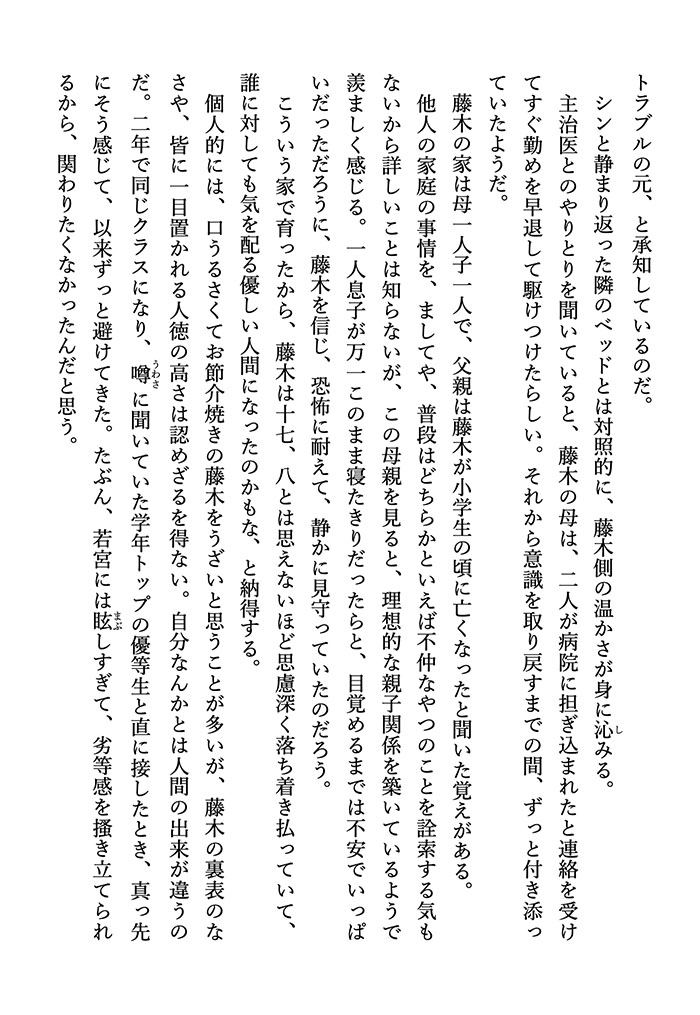 トラブルの元、と承知しているのだ。
シンと静まり返った隣のベッドとは対照的に、藤木側の温かさが身に沁みる。
主治医とのやりとりを聞いていると、藤木の母は、二人が病院に担ぎ込まれたと連絡を受け
てすぐ勤めを早退して駆けつけたらしい。それから意識を取り戻すまでの間、ずっと付き添っ
ていたようだ。
藤木の家は母一人子一人で、父親は藤木が小学生の頃に亡くなったと聞いた覚えがある。
他人の家庭の事情を、ましてや、普段はどちらかといえば不仲なやつのことを詮索する気も
ないから詳しいことは知らないが、この母親を見ると、理想的な親子関係を築いているようで
羨ましく感じる。一人息子が万一このまま寝たきりだったらと、目覚めるまでは不安でいっぱ
いだっただろうに、藤木を信じ、恐怖に耐えて、静かに見守っていたのだろう。
こういう家で育ったから、藤木は十七、八とは思えないほど思慮深く落ち着き払っていて、
誰に対しても気を配る優しい人間になったのかもな、と納得する。
個人的には、口うるさくてお節介焼きの藤木をうざいと思うことが多いが、藤木の裏表のな
さや、皆に一目置かれる人徳の高さは認めざるを得ない。自分なんかとは人間の出来が違うの
だ。二年で同じクラスになり、噂に聞いていた学年トップの優等生と直に接したとき、真っ先
にそう感じて、以来ずっと避けてきた。たぶん、若宮には眩しすぎて、劣等感を掻き立てられ
るから、関わりたくなかったんだと思う。